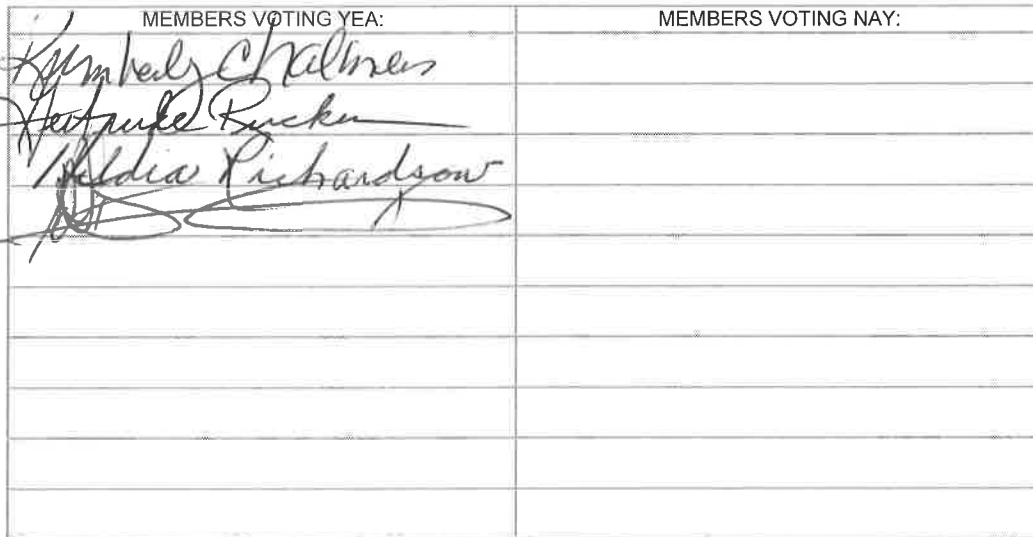 MEMBERS VOTING YEA: MEMBERS VOTING NAY:
Kymberly Chalmers
Gertrude Rucker
Richardson